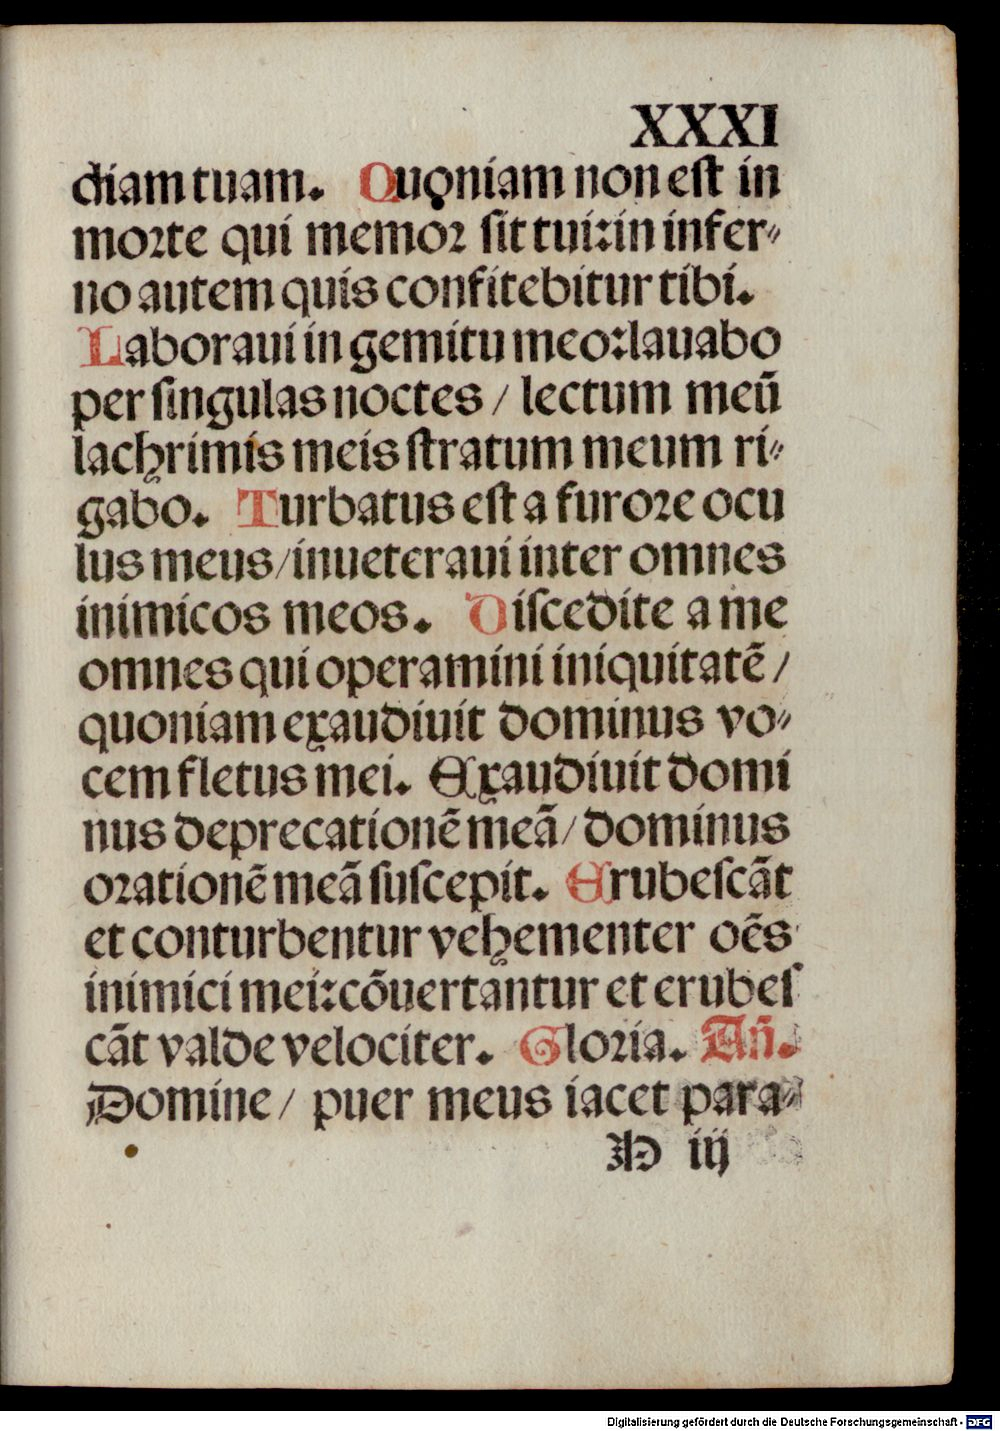 XXXI
diam tuam. Quoniam non est in
morte qui memor sit tui: in infer-
no autem quis confitebitur tibi.
Laboraui in gemitu meo: lauabo
per singulas noctes / lectum meũ
lachrimis meis stratum meum ri-
gabo. Turbatus est a furore ocu
lus meus / inueteraui inter omnes
inimicos meos. Discedite a me
omnes qui operamini iniquitatẽ /
quoniam exaudiuit dominus vo-
cem fletus mei. Exaudiuit domi
nus deprecationẽ meã / dominus
orationẽ meã suscepit. Erubescãt
et conturbentur vehementer oẽs
inimici mei: cõuertantur et erubes
cãt valde velociter. Gloria. Añ.
Domine / puer meus iacet para-
H iij
Digitalisierung gefördert durch die Deutsche Forschungsgemeinschaft - DFG